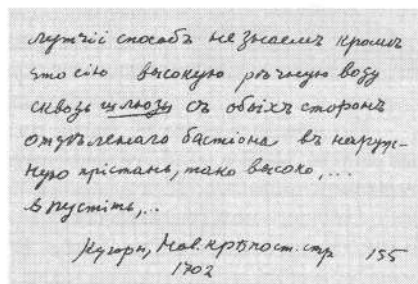 лутчіі способъ не знаемъ кромѣ
что сію высокую рѣчную воду
сквозь шлюзы съ обоіхъ сторонъ
отдѣленаго бастіона въ наруж-
ную прістань, тако высоко,...
впустіть,...
Кугорн, Нов. крѣпост. стр 155
1702